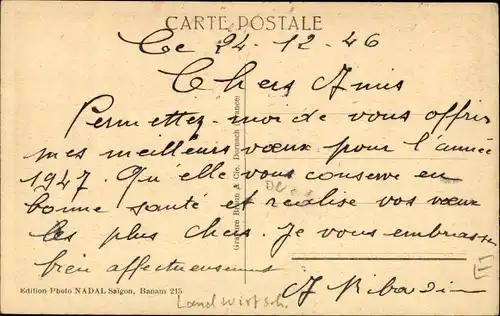 CARTE POSTALE
Le 24-12-46
Chers Amis
Permettez-moi de vous offrir
mes meilleurs vœux pour l'année
1947. Qu'elle vous conserve en
bonne santé et réalise vos vœux
les plus chers. Je vous embrasse
bien affectueusement
Gravure Braun & Cie, Dornach (France)
Edition Photo NADAL Saïgon, Banam 215
Landwirtsch.
E